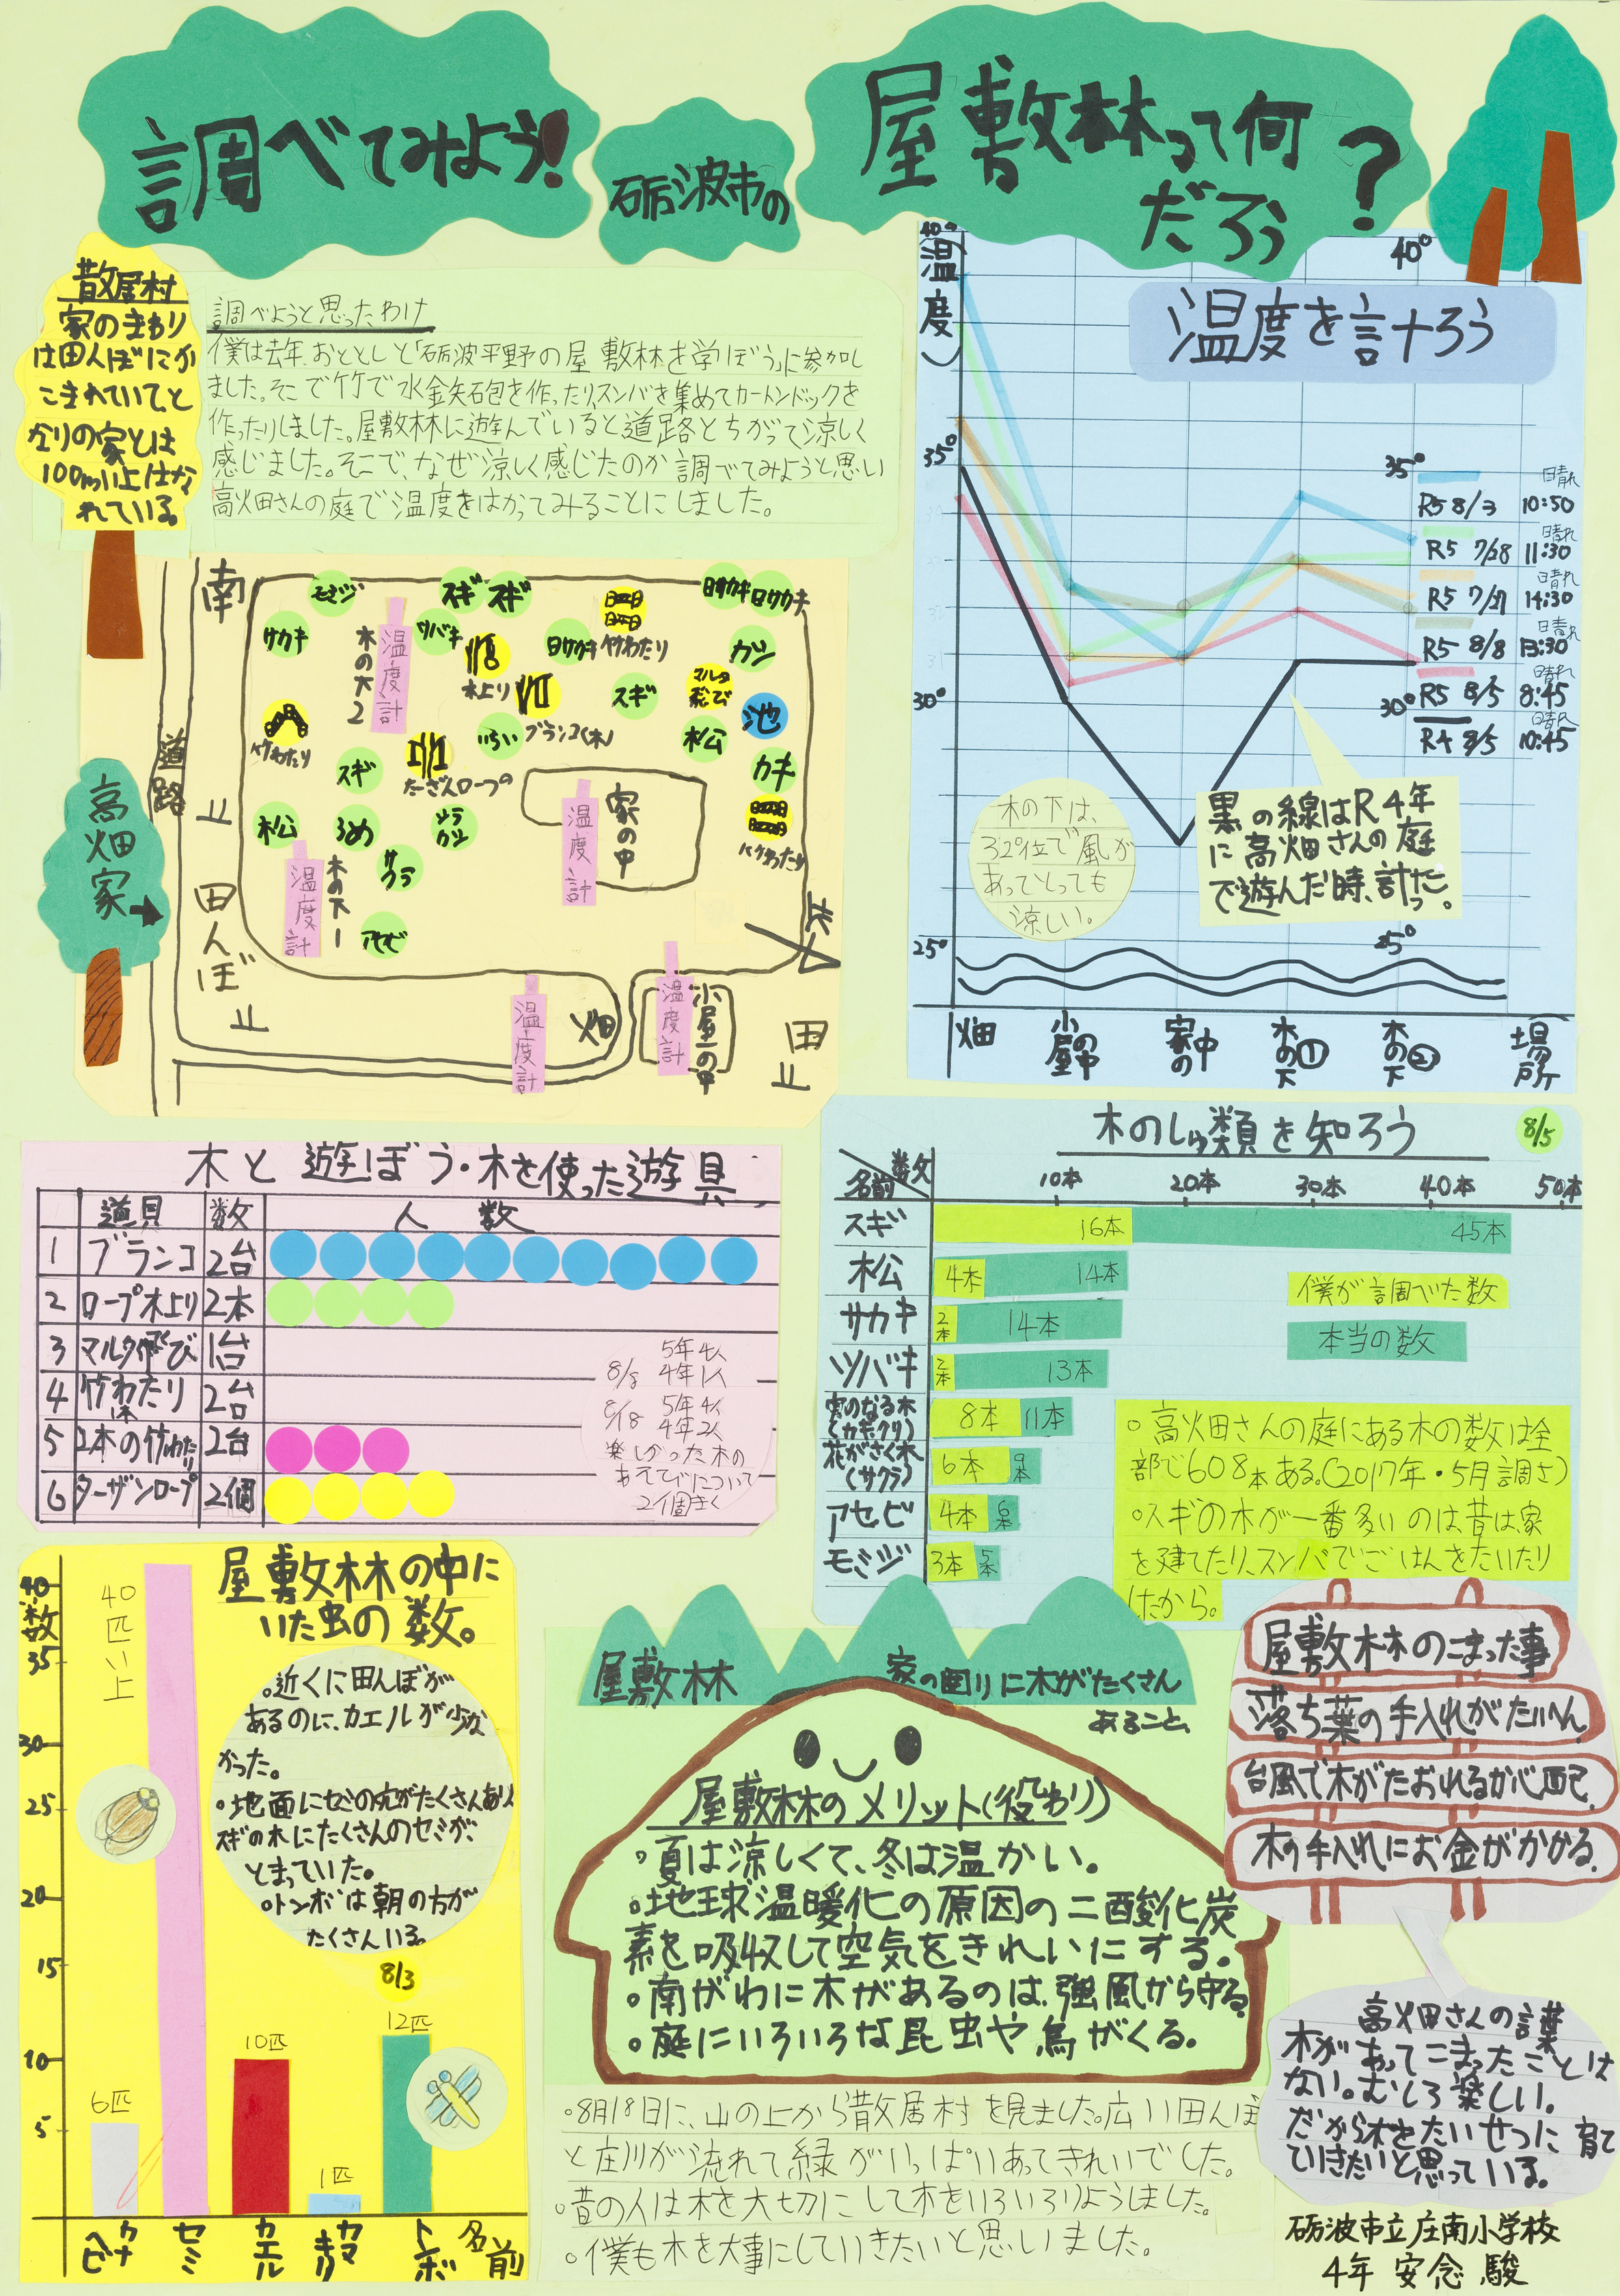 調べてみよう!
砺波市の
屋敷林って何
だろう?
散居村
家のまわり
は田んぼにか
こまれていて、と
なりの家とは
100m以上はな
れている。
調べようと思ったわけ
僕は去年、おととしと「砺波平野の屋敷林を学ぼう」に参加し
ました。そこで竹で水鉄砲を作ったり、スンバを集めてカートンドックを
作ったりしました。屋敷林に遊んでいると道路とちがって涼しく
感じました。そこで、なぜ涼しく感じたのか調べてみようと思い
高畑さんの庭で温度をはかってみることにしました。
温度を計ろう
40°
温度)
35°
30°
25°
40°
35°
30°
25°
31
日晴れ
R5 8/3 10:50
日晴れ
R5 7/28 11:30
日晴れ
R5 7/27 14:30
日晴れ
R5 8/8 13:30
日晴れ
R5 8/5 8:45
日晴れ
R4 8/5 10:45
木の下は、
32°位で風が
あってとっても
涼しい。
黒の線はR4年
に高畑さんの庭
で遊んだ時、計った。
畑
小屋の中
家の中
木の下①
木の下②
場所
南
道路
高畑家
田んぼ
モミジ
スギ
スギ
竹わたり
ヒサカキ
ヒサカキ
サカキ
木の下2
温度計
ツバキ
木上り
ヒサカキ
カシ
スギ
マルタ飛び
池
竹わたり
いちい
ブランコ(木)
松
スギ
たーざんロープの
カキ
松
うめ
ウラカシ
家の中
温度計
竹わたり
木の下1
温度計
サクラ
アセビ
北
温度計
畑
温度計
小屋の中
田
木と遊ぼう・木を使った遊具
道具 数 人数
1 ブランコ 2台
2 ロープ木上り 2本
3 マルタ飛び 1台
4 竹わたり 2台
5 2本の竹わたり 2台
6 ターザンロープ 2個
5年4人
8/8 4年1人
5年4人
8/18 4年2人
楽しかった木の
あそびについて
2個きく
木のしゅ類を知ろう
8/5
数
名前
10本 20本 30本 40本 50本
スギ 16本 45本
松 4本 14本
サカキ 2本 14本
ツバキ 2本 13本
実のなる木(カキ、クリ) 8本 11本
花がさく木(サクラ) 6本 9本
アセビ 4本 6本
モミジ 3本 5本
僕が調べた数
本当の数
○高畑さんの庭にある木の数は全
部で608本ある。(2017年・5月調さ)
○スギの木が一番多いのは昔は、家
を建てたり、スンバでごはんをたいたり
したから。
屋敷林の中に
いた虫の数。
40
数
35
30
25
20
15
10
5
40匹以上
○近くに田んぼが
あるのに、カエルが少な
かった。
○地面にセミの穴がたくさんあり、
スギの木にたくさんのセミが、
とまっていた。
○トンボは朝の方が
たくさんいる。
8/3
6匹
10匹
1匹
12匹
カナヘビ
セミ
カエル
カマキリ
トンボ
名前
屋敷林
家の回りに木がたくさん
あること、
屋敷林のメリット(役わり)
○夏は涼しくて、冬は温かい。
○地球温暖化の原因の二酸化炭
素を吸収して空気をきれいにする。
○南がわに木があるのは、強風から守る。
○庭にいろいろな昆虫や鳥がくる。
○8月18日に、山の上から散居村を見ました。広い田んぼ
と庄川が流れて緑がいっぱいあってきれいでした。
○昔の人は木を大切にして木をいろいろりようしました。
○僕も木を大事にしていきたいと思いました。
屋敷林のこまった事
落ち葉の手入れがたいへん。
台風で木がたおれるか心配。
木の手入れにお金がかかる。
高畑さんの言葉
木があってこまったことは
ない。むしろ楽しい。
だから木をたいせつに育て
ていきたいと思っている。
砺波市立庄南小学校
4年 安念 駿